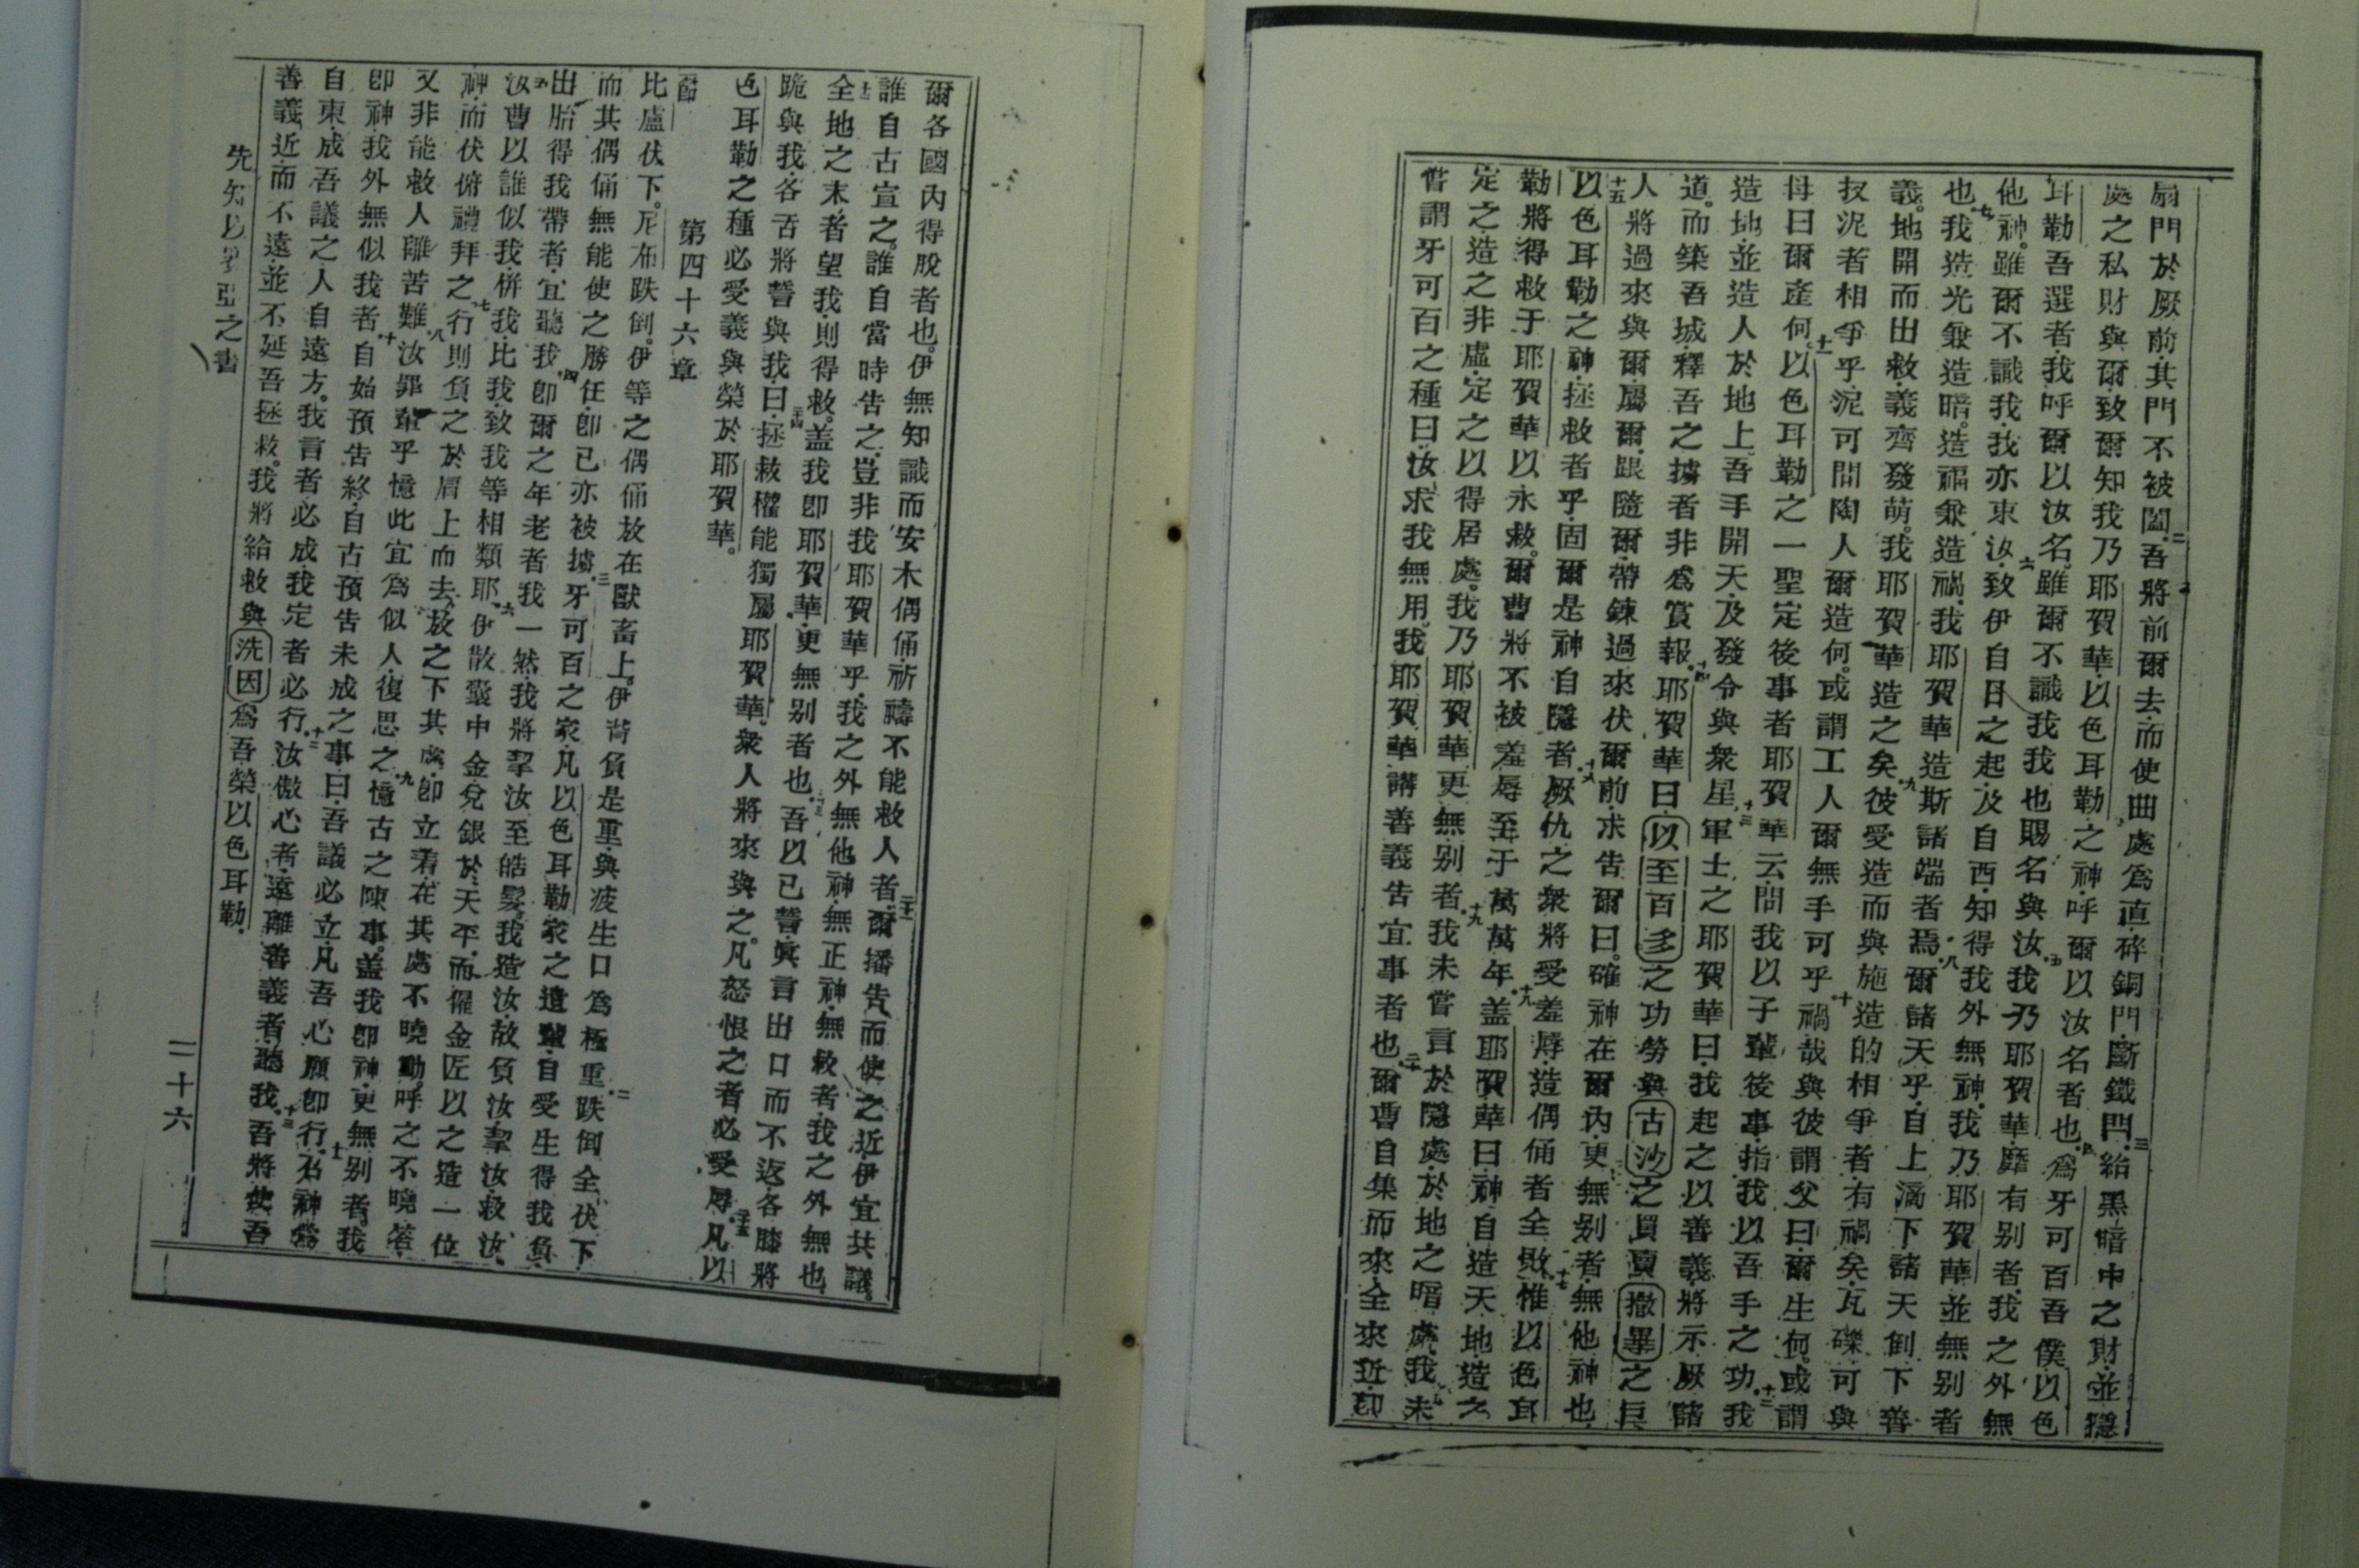 扇門於厥前其門不被闔吾將前爾去而使曲處為直碎銅門斷鐵門給黑暗中之財並隱
處之私財與爾致爾知我乃耶賀華以色耳勒之神呼爾以汝名者也為牙可百吾僕以色
耳勒吾選者我呼爾以汝名雖爾不識我我也賜名與汝我乃耶賀華靡有别者我之外無
他神雖爾不識我我亦束汝致伊自日之起及自西知得我外無神我乃耶賀華並無别者
也我造光兼造暗造福兼造禍我耶賀華造斯諸端者焉爾諸天乎自上滴下諸天倒下善
義地開而出救義齊發萌我耶賀華造之矣彼受造而與施造的相爭者有禍矣瓦礫可與
扠泥者相爭乎泥可問陶人爾造何或謂工人爾無手可乎禍哉與彼謂父曰爾生何或謂
母曰爾產何以色耳勒之一聖定後事者耶賀華云問我以子輩後事指我以吾手之功我
造地並造人於地上吾手開天及發令與衆星軍士之耶賀華曰我起之以善義將示厥諸
道而築吾城釋吾之擄者非為賞報耶賀華曰以至百多之功勞與古沙之買賣撒畢之巨
人將過來與爾屬爾跟隨爾帶鍊過來伏爾前求告爾曰確神在爾內更無别者無他神也
以色耳勒之神拯救者乎固爾是神自隱者厥仇之衆將受羞辱造偶俑者全敗惟以色耳
勒將得救于耶賀華以永救爾曹將不被羞辱至于萬萬年盖耶賀華曰神自造天地造之
定之造之非虛定之以得居處我乃耶賀華更無别者我未嘗言於隱處於地之暗處我未
嘗謂牙可百之種曰汝求我無用我耶賀華講善義告宜事者也爾曹自集而來全來近卽
爾各國內得脫者也伊無知識而安木偶俑祈禱不能救人者爾播告而使之近伊宜共議
誰自古宣之誰自當時告之豈非我耶賀華乎我之外無他神無正神無救者我之外無也
全地之末者望我則得救盖我卽耶賀華更無别者也吾以已誓真言出口而不返各膝將
跪與我各舌將誓與我曰拯救權能獨屬耶賀華衆人將來與之凡怒恨之者必受辱凡以
色耳勒之種必受義與榮於耶賀華
第四十六章
比盧伏下尼布跌倒伊等之偶俑放在獸畜上伊背負是重與疲生口為極重跌倒全伏下
而其偶俑無能使之勝任卽已亦被擄牙可百之家凡以色耳勒家之遺輩自受生得我負
出胎得我帶者宜聽我卽爾之年老者我一然我將挈汝至皓髮我造汝故負汝挈汝救汝
汝曹以誰似我併我比我致我等相類耶伊散囊中金兌銀於天平而僱金匠以之造一位
神而伏俯禮拜之行則負之於肩上而去放之下其處卽立着在其處不曉動呼之不曉答
又非能救人離苦難汝罪輩乎憶此宜為似人復思之憶古之陳事盖我卽神更無别者我
卽神我外無似我者自始預告終自古預告未成之事曰吾議必立凡吾心願卽行召神鷹
自東成吾議之人自遠方我言者必成我定者必行汝傲心者遠離善義者聽我吾將使吾
善義近而不遠並不延吾拯救我將給救與洗因為吾榮以色耳勒
先知以賽亞之書
二十六